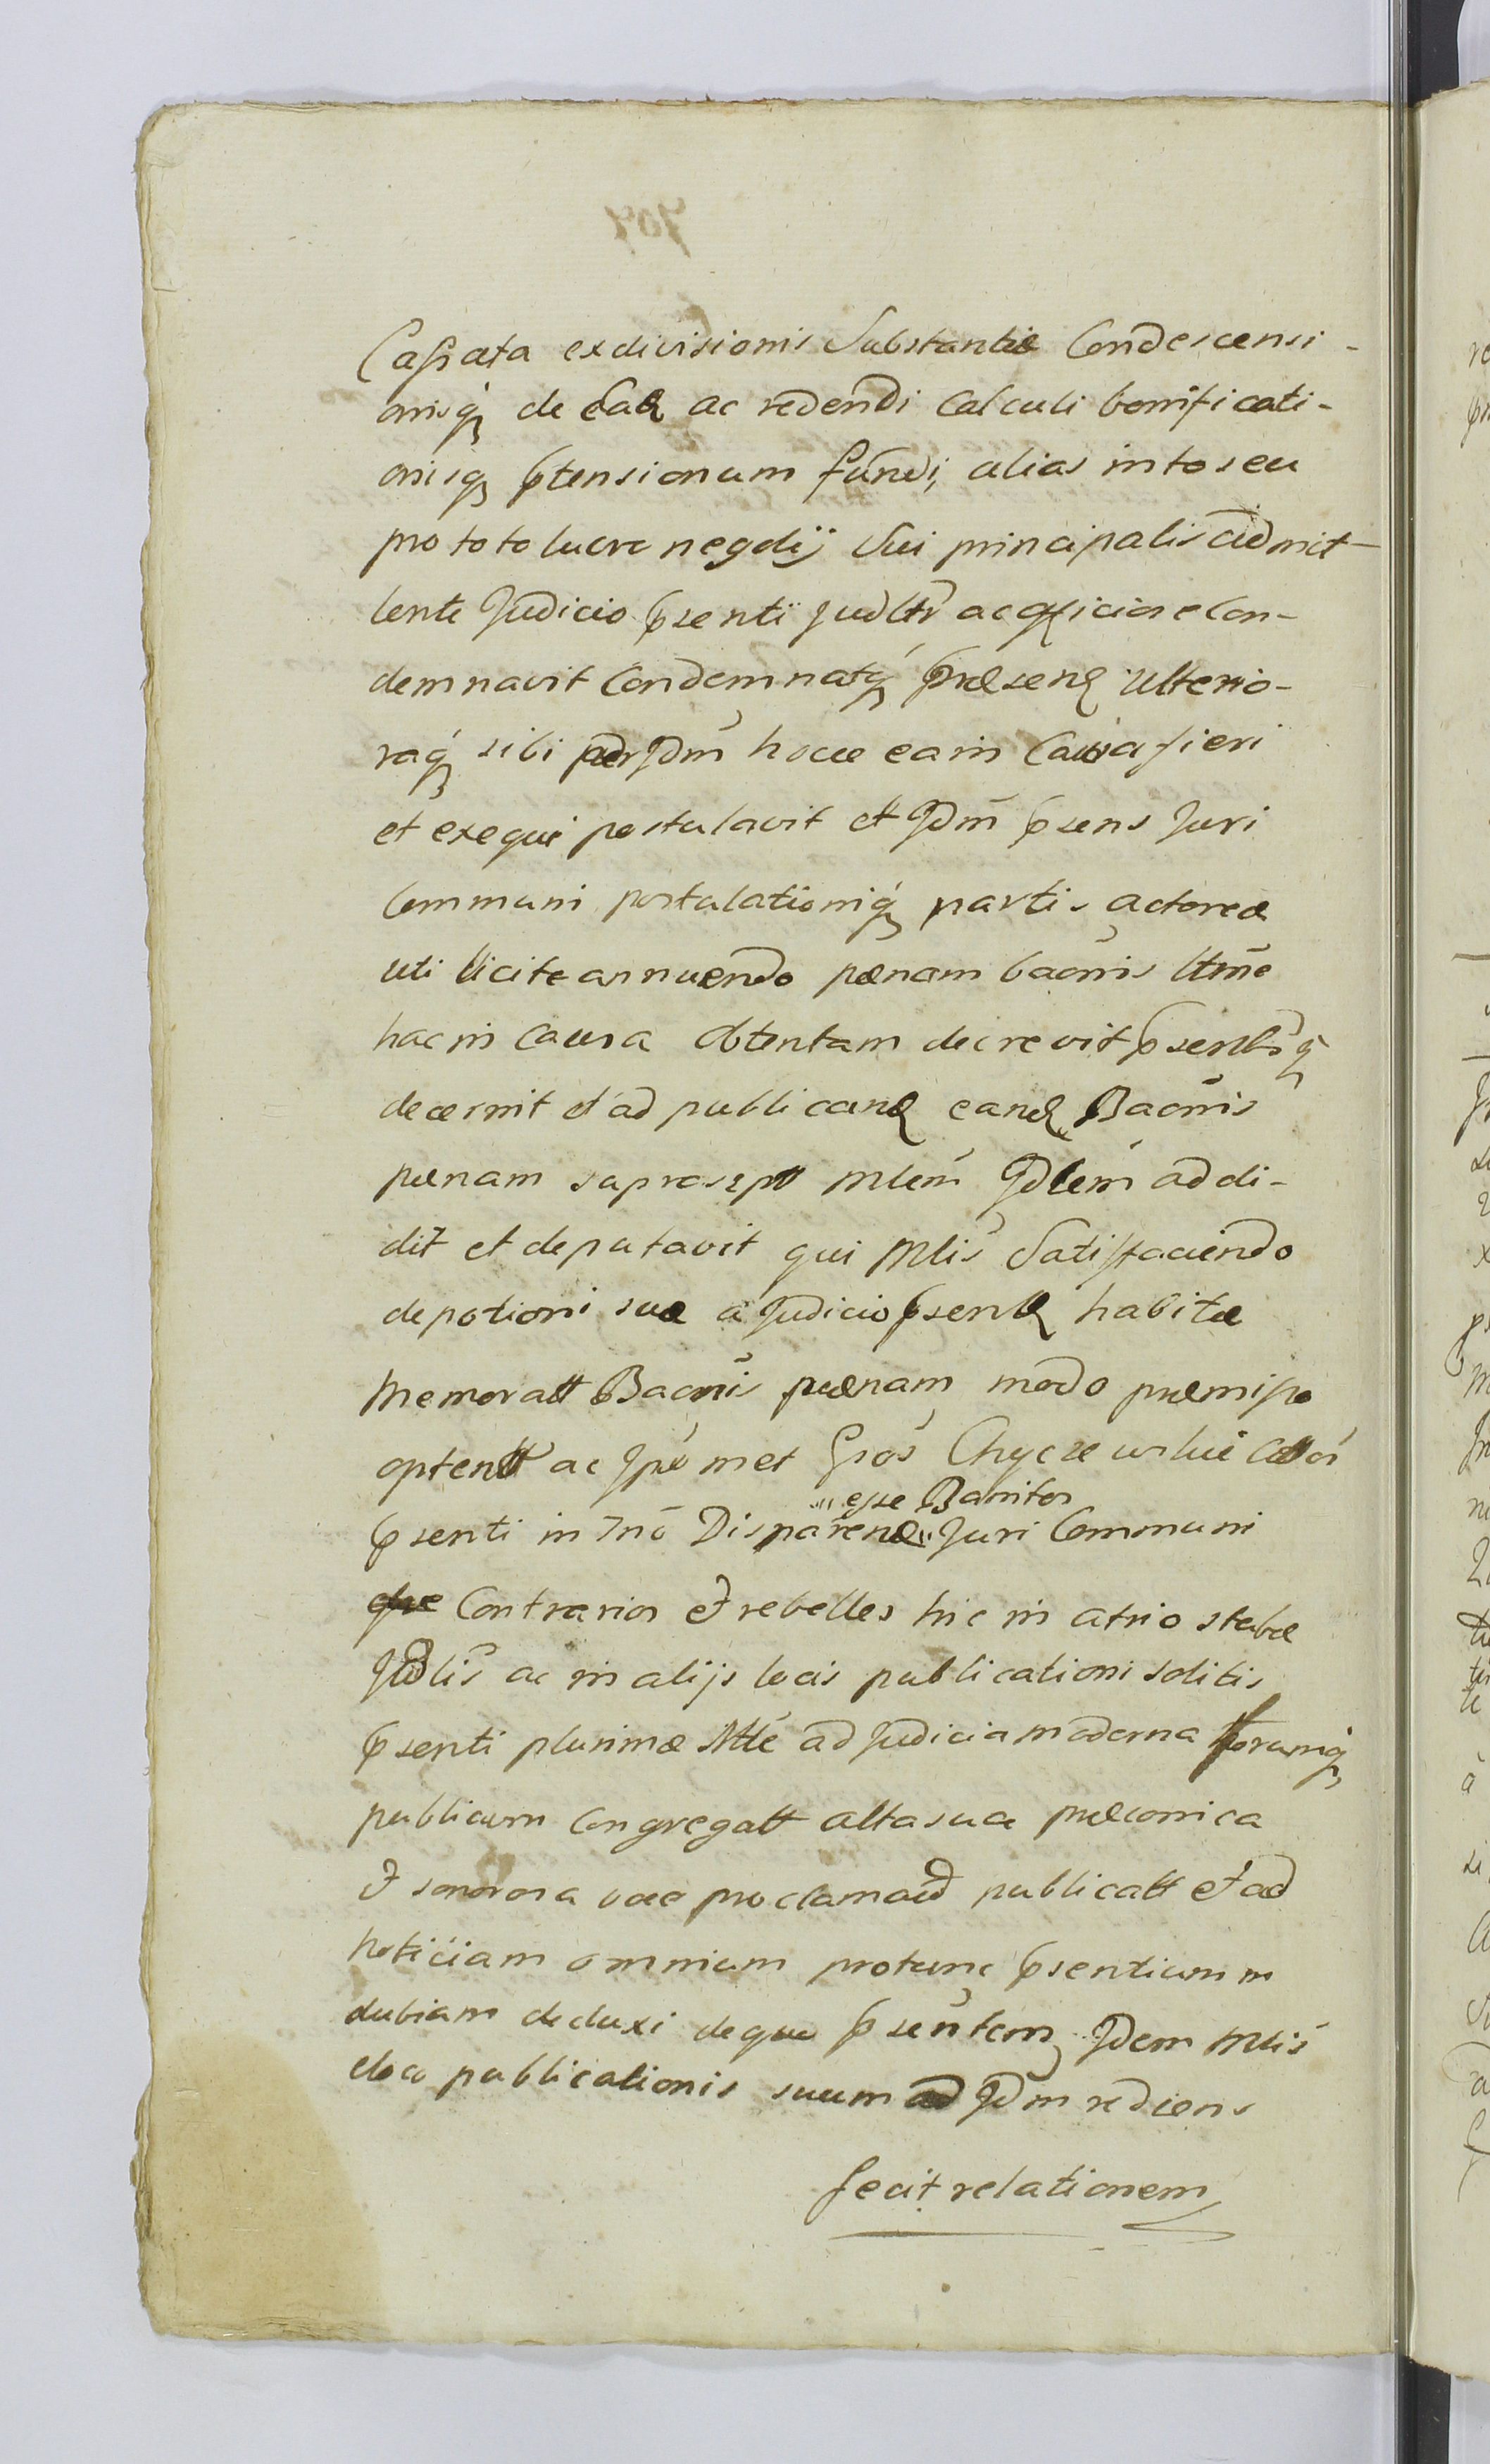 Cassata ex divisionis Substantiæ Condescensi-
onisq́ de Ead ac reddendi Calculi bonificati-
onisq ptensionum fundi, alias in to seu
pro toto lucro negotij sui principalis admit-
tente Judicio psenti Judltr ac officiose Con-
demnavit Condemnatq́ præsen Ulterio-
raq́ sibi per Jdm hocce ea in Causa fieri
et exequi postulavit et Jdm psens Juri
Communi postulationiq́ partis actoreæ
uti licite annuendo pænam bacnis ltme
hac in Causa obtentam decrevit psentbsq
decernit et ad publicand eand Bacnis
pænam suprascpt Mlem Jdlem addi-
dit et deputavit qui Mlis Satisfaciendo
depotioni suæ a Judicio psent habitæ
Memoratt Bacnis pænam modo præmisso
optentt ac Jpso met Gros Chycze
esse Banitos
psenti in Jno Disparend Juri Communi
Contrarios et rebelles hic in atrio stubæ
Judlis ac in alijs locis publicationi solitis
psenti plurimæ Mtte ad Judicia moderna forumq
publicum Congregatt alta sua præconica
et sonorosa voce proclamavit publicatt et ad
noticiam omnium protunc psentium in
dubiam deduxi de quo psentem Jdem Mlis
eloco publicationis suum ad Jdm rediens
fecit relationem